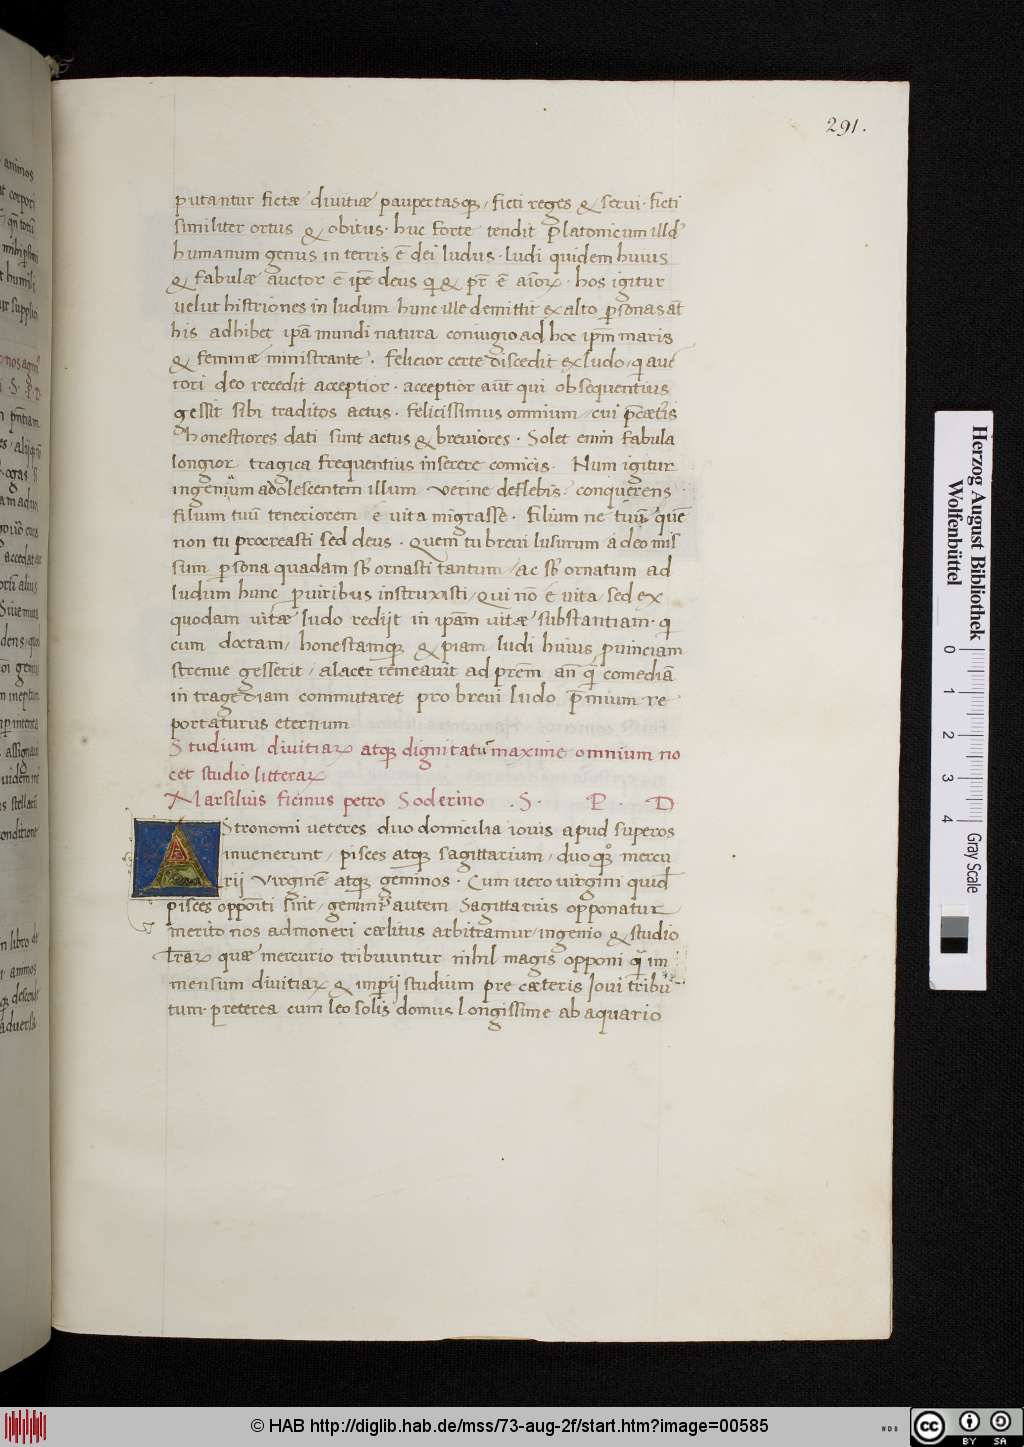 291.
putantur fictæ divitiæ paupertasq3, ficti reges & servi. ficti
similiter ortus & obitus. huc forte tendit platonicum illd̄
humanum genus in terris ē dei ludus. ludi quidem huius
& fabulæ auctor ē ipē deus q̄ & pr̄ ē aīorꝝ. hos igitur
uelut histriones in ludum hunc ille demittit ex alto ꝑsonas at̄
his adhibet ipā mundi natura coniugio ad hoc ipm̄ maris
& feminæ ministrante. felicior certe discedit ex ludo, q̄ auc
tori deo recedit acceptior. acceptior aūt qui obsequentius
gessit sibi traditos actus. felicissimus omnium, cui p̄cæteris
honestiores dati sunt actus & breuiores. Solet enim fabula
longior tragica frequentius inserere comicis. Num igitur
ingenuum adolescentem illum Verine deflebis? conquerens
filium tuū teneriorem e uita migrasse. filium ne tuum quē
non tu procreasti sed deus. Quem tu breui lusurum a deo mis
sum ꝑsona quadam sb̄ ornasti tantum, ac sb̄ ornatum ad
ludum hunc p̄ uiribus instruxisti, Qui nō e uita, sed ex
quodam uitæ ludo redijt in ipam uitæ substantiam. q̄
cum doctam, honestamq3 & piam, ludi huius ꝓuinciam
strenue gesserit, alacer remeauit ad prem̄ an̄ q̄ comediā
in tragediam commutaret pro breui ludo p̄mium re
portaturus eternum
Studium divitiarꝝ atq3 dignitatū maxime omnium no
cet studio litterarꝝ
Marsilius ficinus petro Soderino .S. P. D
AStronomi ueteres duo domicilia iouis apud superos
inuenerunt, pisces atq3 sagittarium, duo q3 mercu
rij Virginē atq3 geminos. Cum uero uirgini quid̄
pisces oppoīti sint, geminis autem Sagittarius opponatur
merito nos admoneri cælitus arbitramur, ingenio & studio
lr̄arꝝ quæ mercurio tribuuntur nihil magis opponi q̄ im
mensum divitiarꝝ & imperij studium pre cæteris Joui tribu
tum. preterea cum leo solis domus longissime ab aquario
Herzog August Bibliothek
Wolfenbüttel
0 1 2 3 4
Gray Scale
© HAB http://diglib.hab.de/mss/73-aug-2f/start.htm?image=00585
WDB
cc BY SA